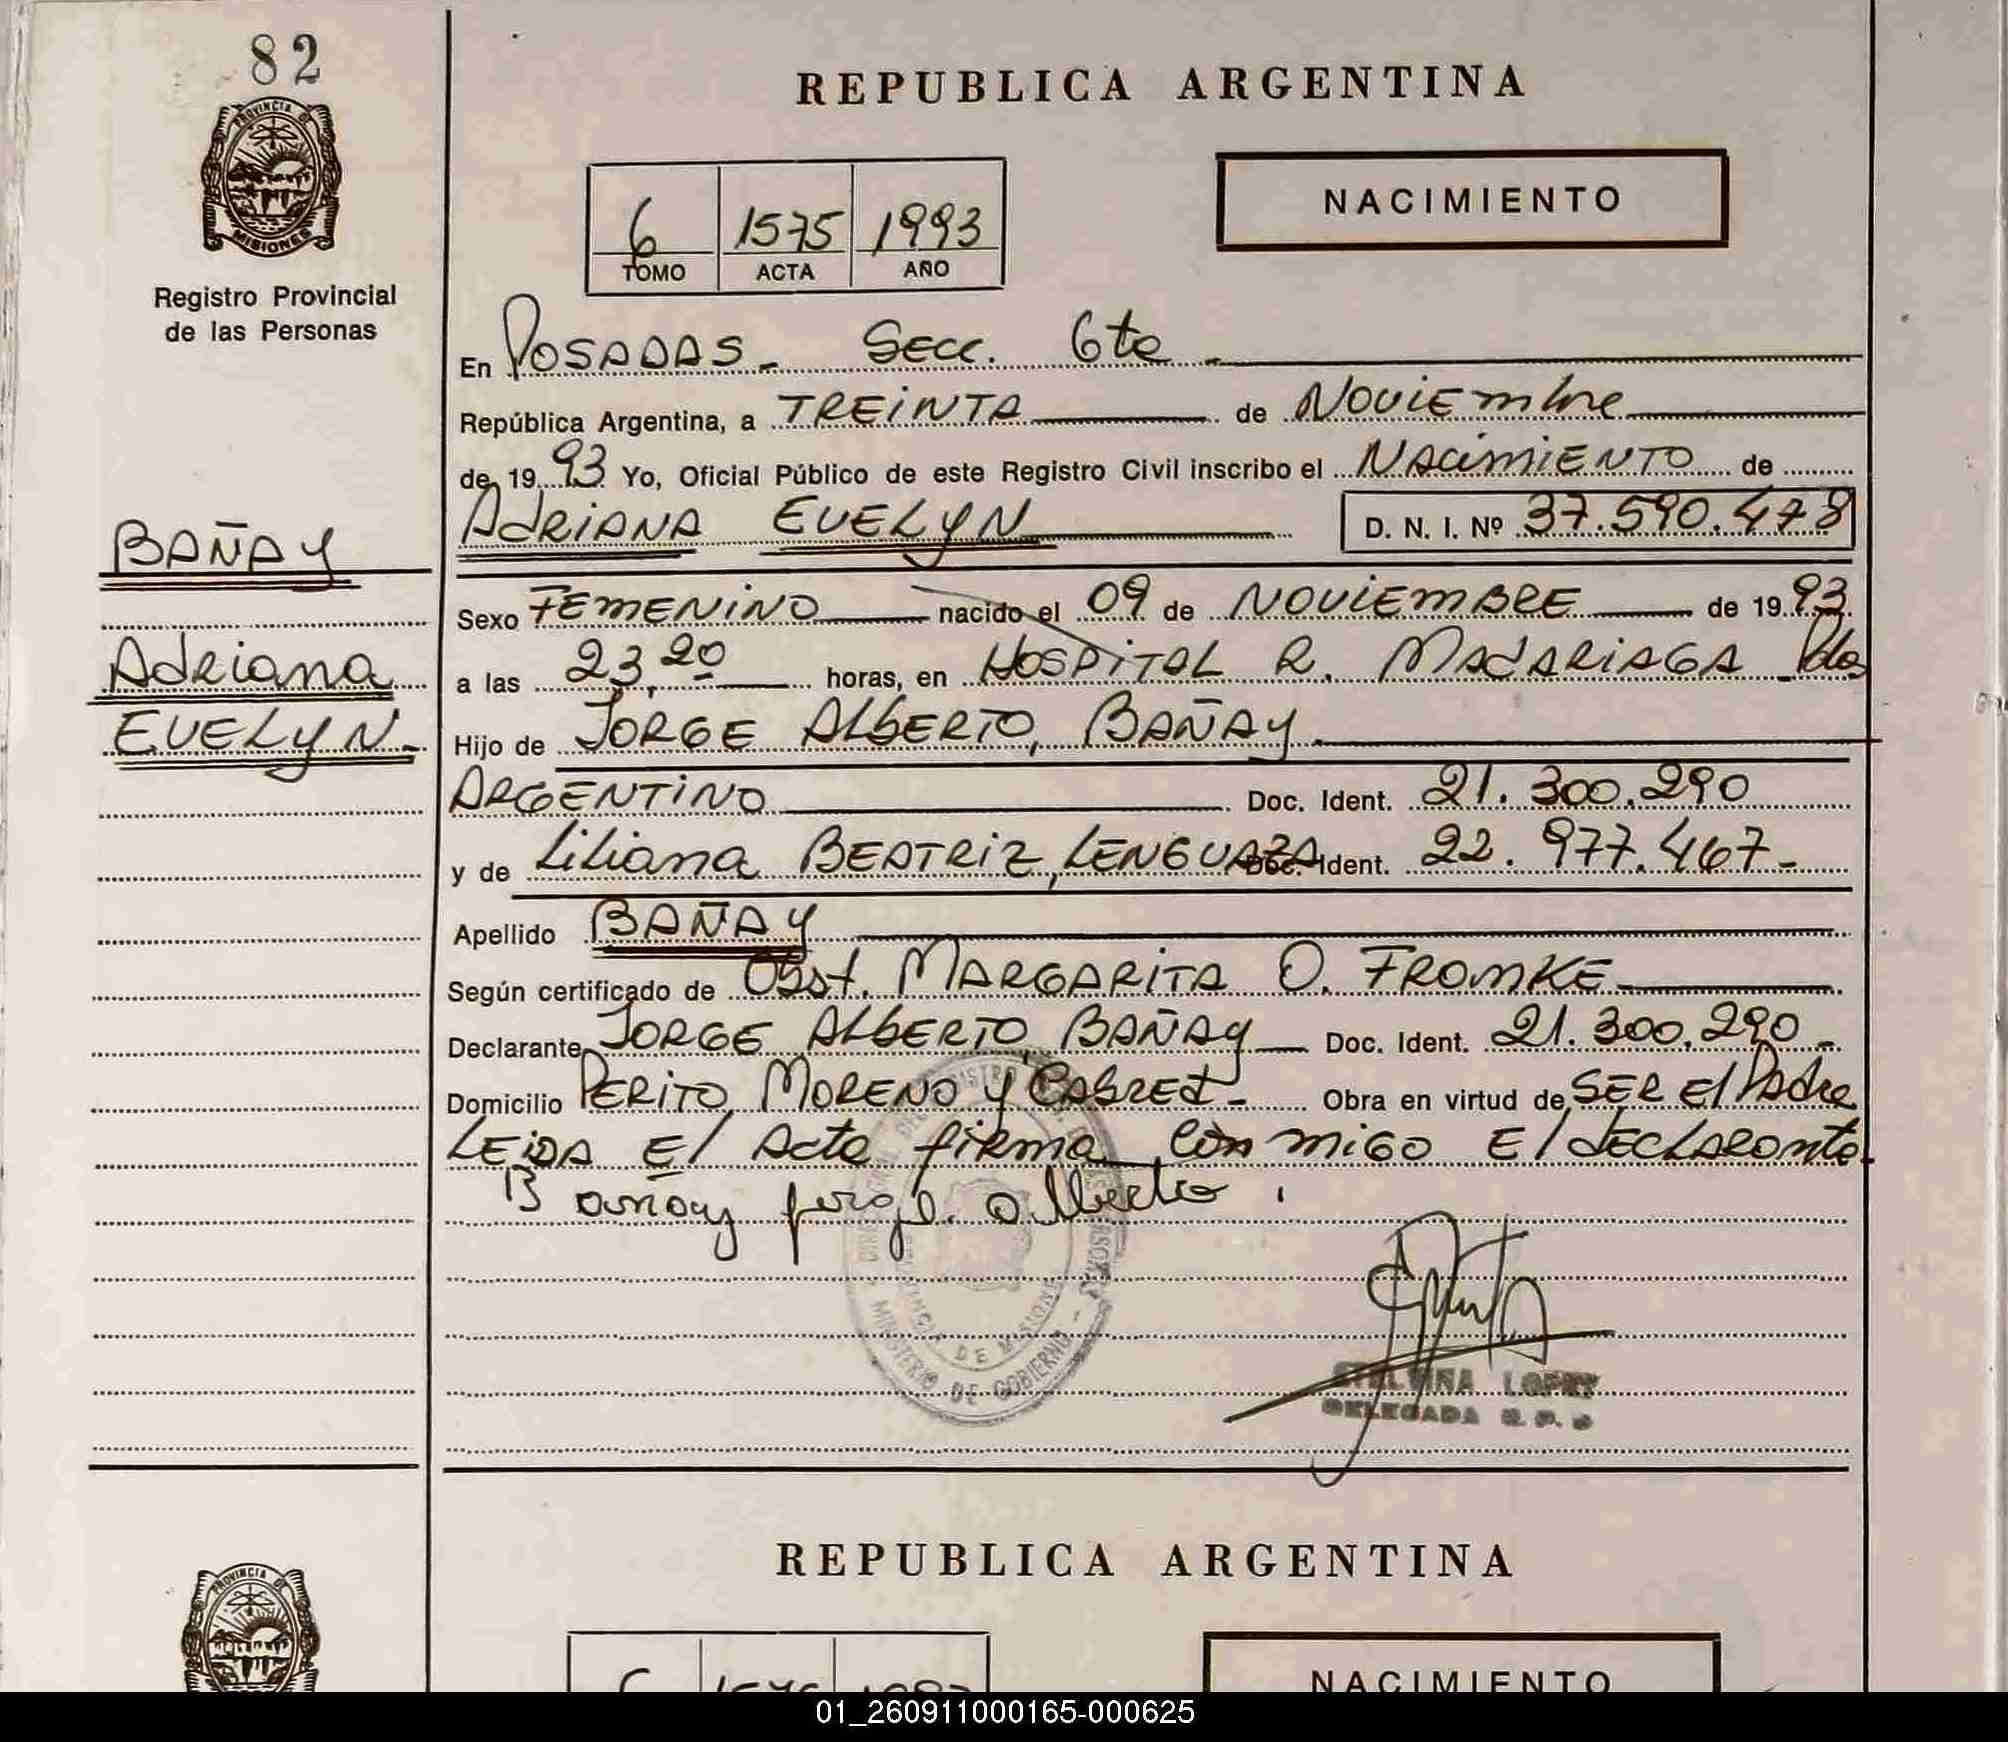 82
REPUBLICA ARGENTINA
PROVINCIA DE
MISIONES
Registro Provincial
de las Personas
6 1575 1993
TOMO ACTA AÑO
NACIMIENTO
En POSADAS - Secc. 6ta -
República Argentina, a TREINTA de Noviembre
de 1993 Yo, Oficial Público de este Registro Civil inscribo el NACIMIENTO de
ADRIANA EVELYN D. N. I. Nº 37.590.478
BAÑAY
Adriana
EVELYN -
Sexo FEMENINO nacido el 09 de NOVIEMBRE de 1993
a las 23,20 horas, en HOSPITAL R. MADARIAGA Pdas
Hijo de JORGE ALBERTO, BAÑAY
ARGENTINO Doc. Ident. 21.300.290
y de Liliana BEATRIZ, LENGUAZA Doc. Ident. 22.977.467-
Apellido BAÑAY
Según certificado de Obst. MARGARITA O. FROMKE
Declarante JORGE ALBERTO BAÑAY Doc. Ident. 21.300.290-
Domicilio PERITO MORENO Y CABRED - Obra en virtud de SER El Padre
LEIDA El Acta firma con migo El declarante
Bañay Jorge Alberto
PROVINCIA DE MISIONES
MINISTERIO DE GOBIERNO
LOPEZ
DELEGADA R. P.
REPUBLICA ARGENTINA
PROVINCIA DE
6 1576 1993
NACIMIENTO
01_260911000165-000625